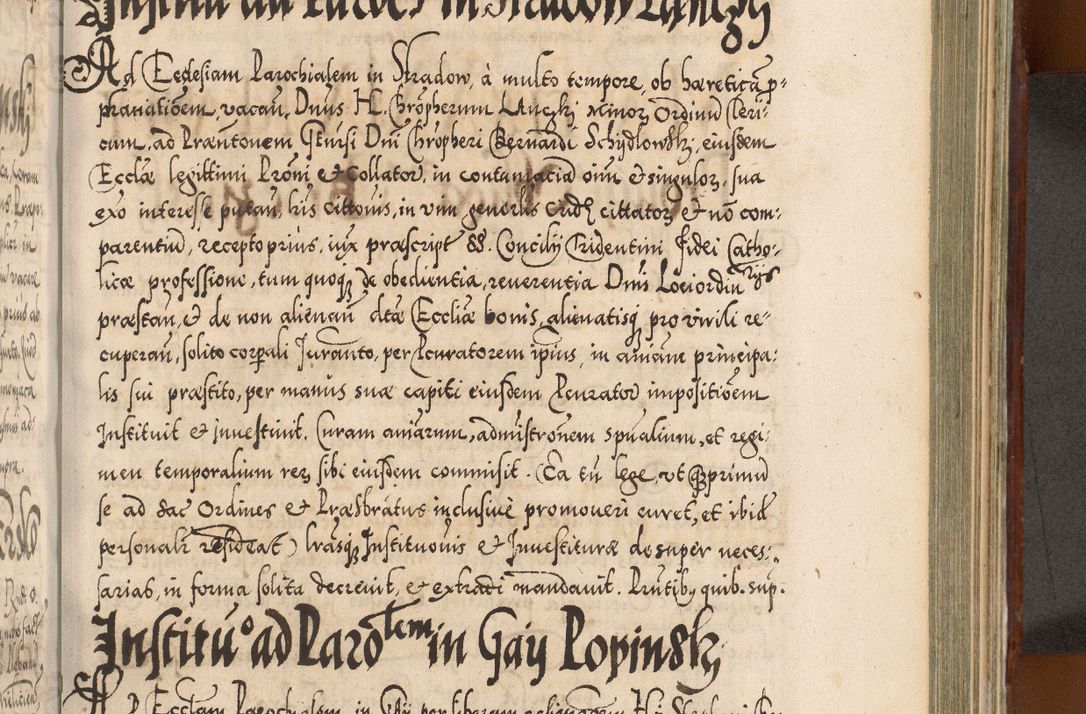 Institu ad Paroch in Stradow
Ad Ecclesiam Parochialem in Stradow, à multo tempore, ob hæreticā p-
phanatiōem, vacan. Dnus H. Chrōpherum Minoꝝ Ordinū Cleri-
cum, ad Præntōnem Gnūsi Dni Chrōpheri Bernardi Schÿdlowskÿ, eiusdem
Ecclæ legittimi Prōni et Collator, in contumaciā oīm et singuloꝝ, sua
exo interesse putan, his cittōnis, in vim generlis cittatoꝝ et nō com-
parentiū, recepto prius, iux præscript SS. Concilÿ Tridentini fidei Catho-
licæ professione, tum quoqꝫ de obedientia, reuerentia Dnis Locīordinÿs
præstan, et de non alienan dtæ Eccliæ bonis, alienatisqꝫ pro virili re-
cuperan, solito corpāli Iurānto, per Pcuratorem ipīus, in animam principa-
lis sui præstito, per manus suæ capiti eiusdem Pcurator impositiōem
Instituit et inuestiuit. Curam aniārum, admīstrōnem spūalium, et regi-
men temporalium reꝝ sibi eiusdem commisit. (Ea tn̄ lege, vt qprimū
se ad sac Ordines et Præsbrātus inclusiuè promoueri curet, et ibid
personalr resideat) lrasqꝫ Institutōnis et Inuestituræ desuper neces-
sarias, in forma solita decreuit, et extradi mandauit. Pntibꝫ quib. sup.
Institu° ad Parotem in Gaÿ Popinskÿ
Ad Ecclam Parochialem, in Gaÿ per liberam